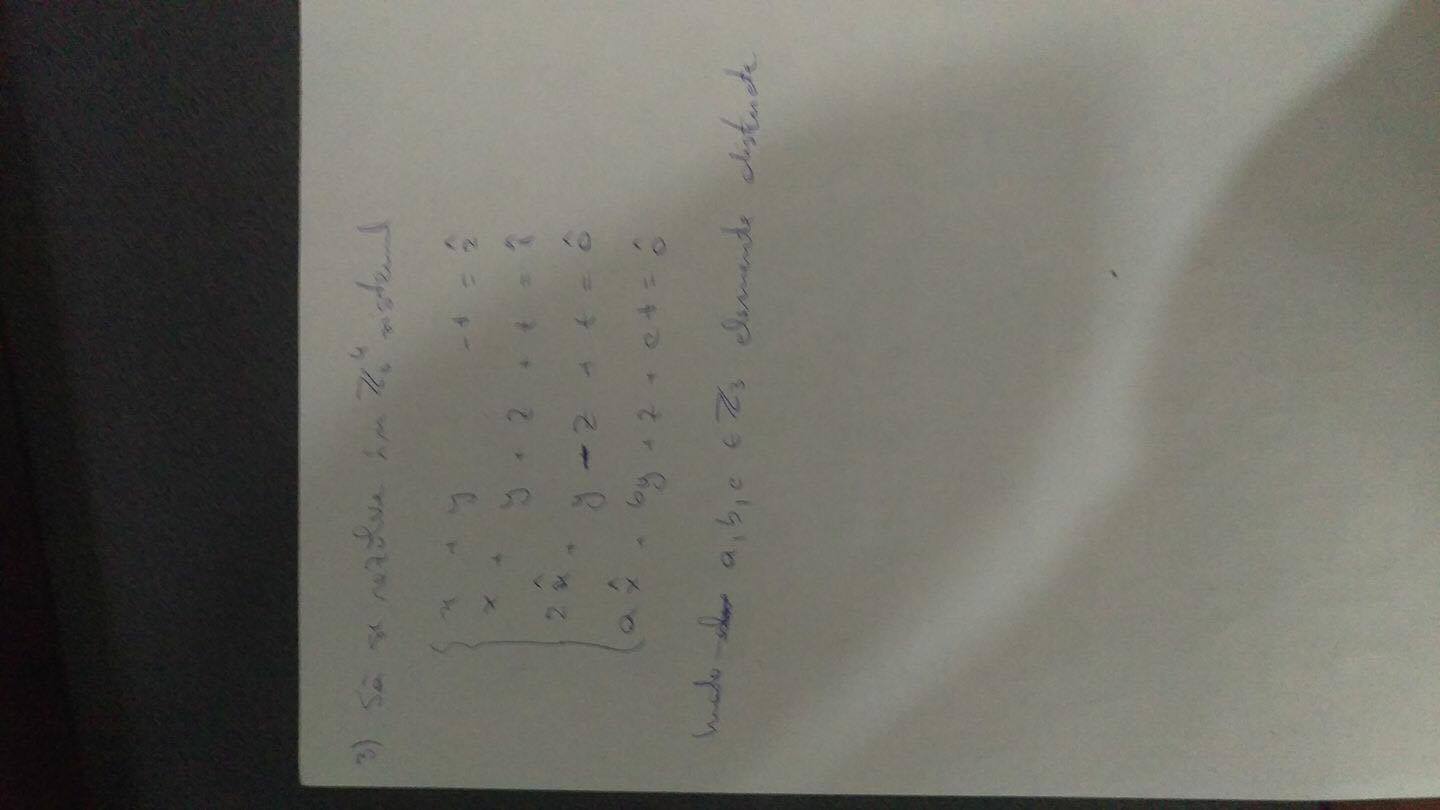 3) Să se rezolve în ℤ₃⁴ sistemul
x + y - t = 2̂
x + y + z + t = 1̂
2x̂ + y - z + t = 0̂
ax̂ + by + z + ct = 0̂
a, b, c ∈ ℤ₃ elemente distincte